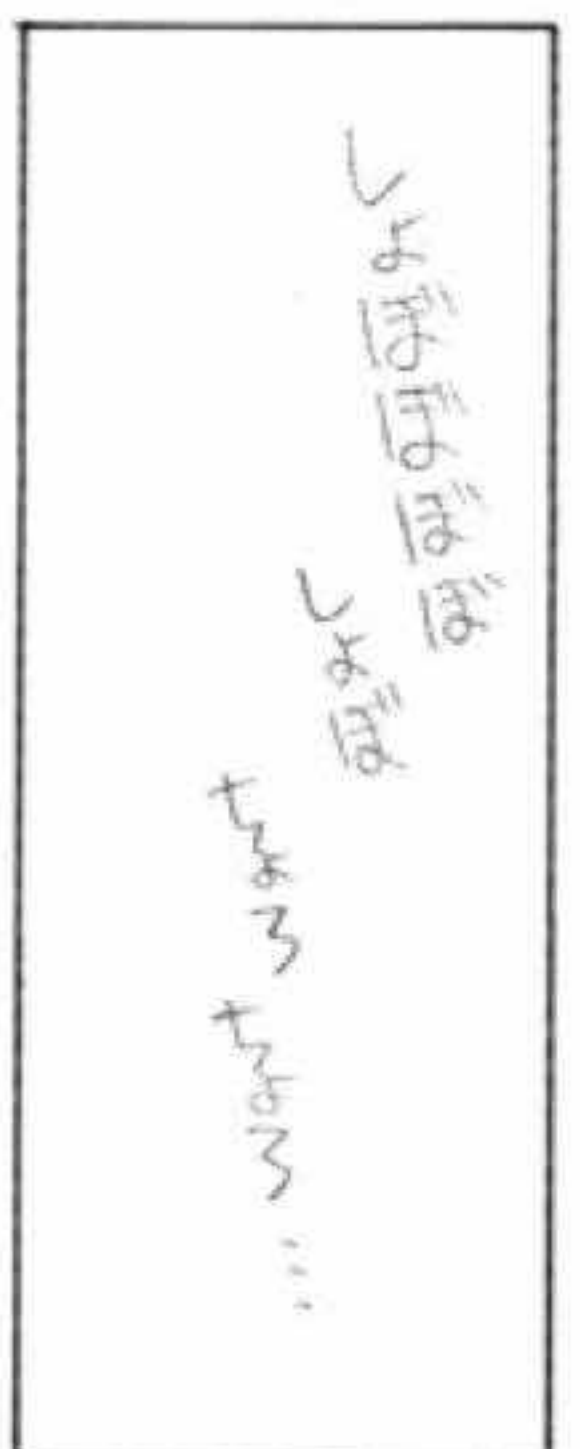 しょぼぼぼぼ
しょぼ
ちょろ
ちょろ…